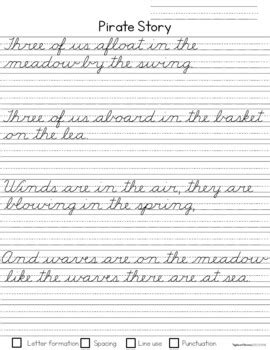 Pirate Story
Three of us afloat in the
meadow by the swing.
Three of us aboard in the basket
on the lea.
Winds are in the air, they are
blowing in the spring,
And waves are on the meadow
like the waves there are at sea.
Letter formation Spacing Line use Punctuation